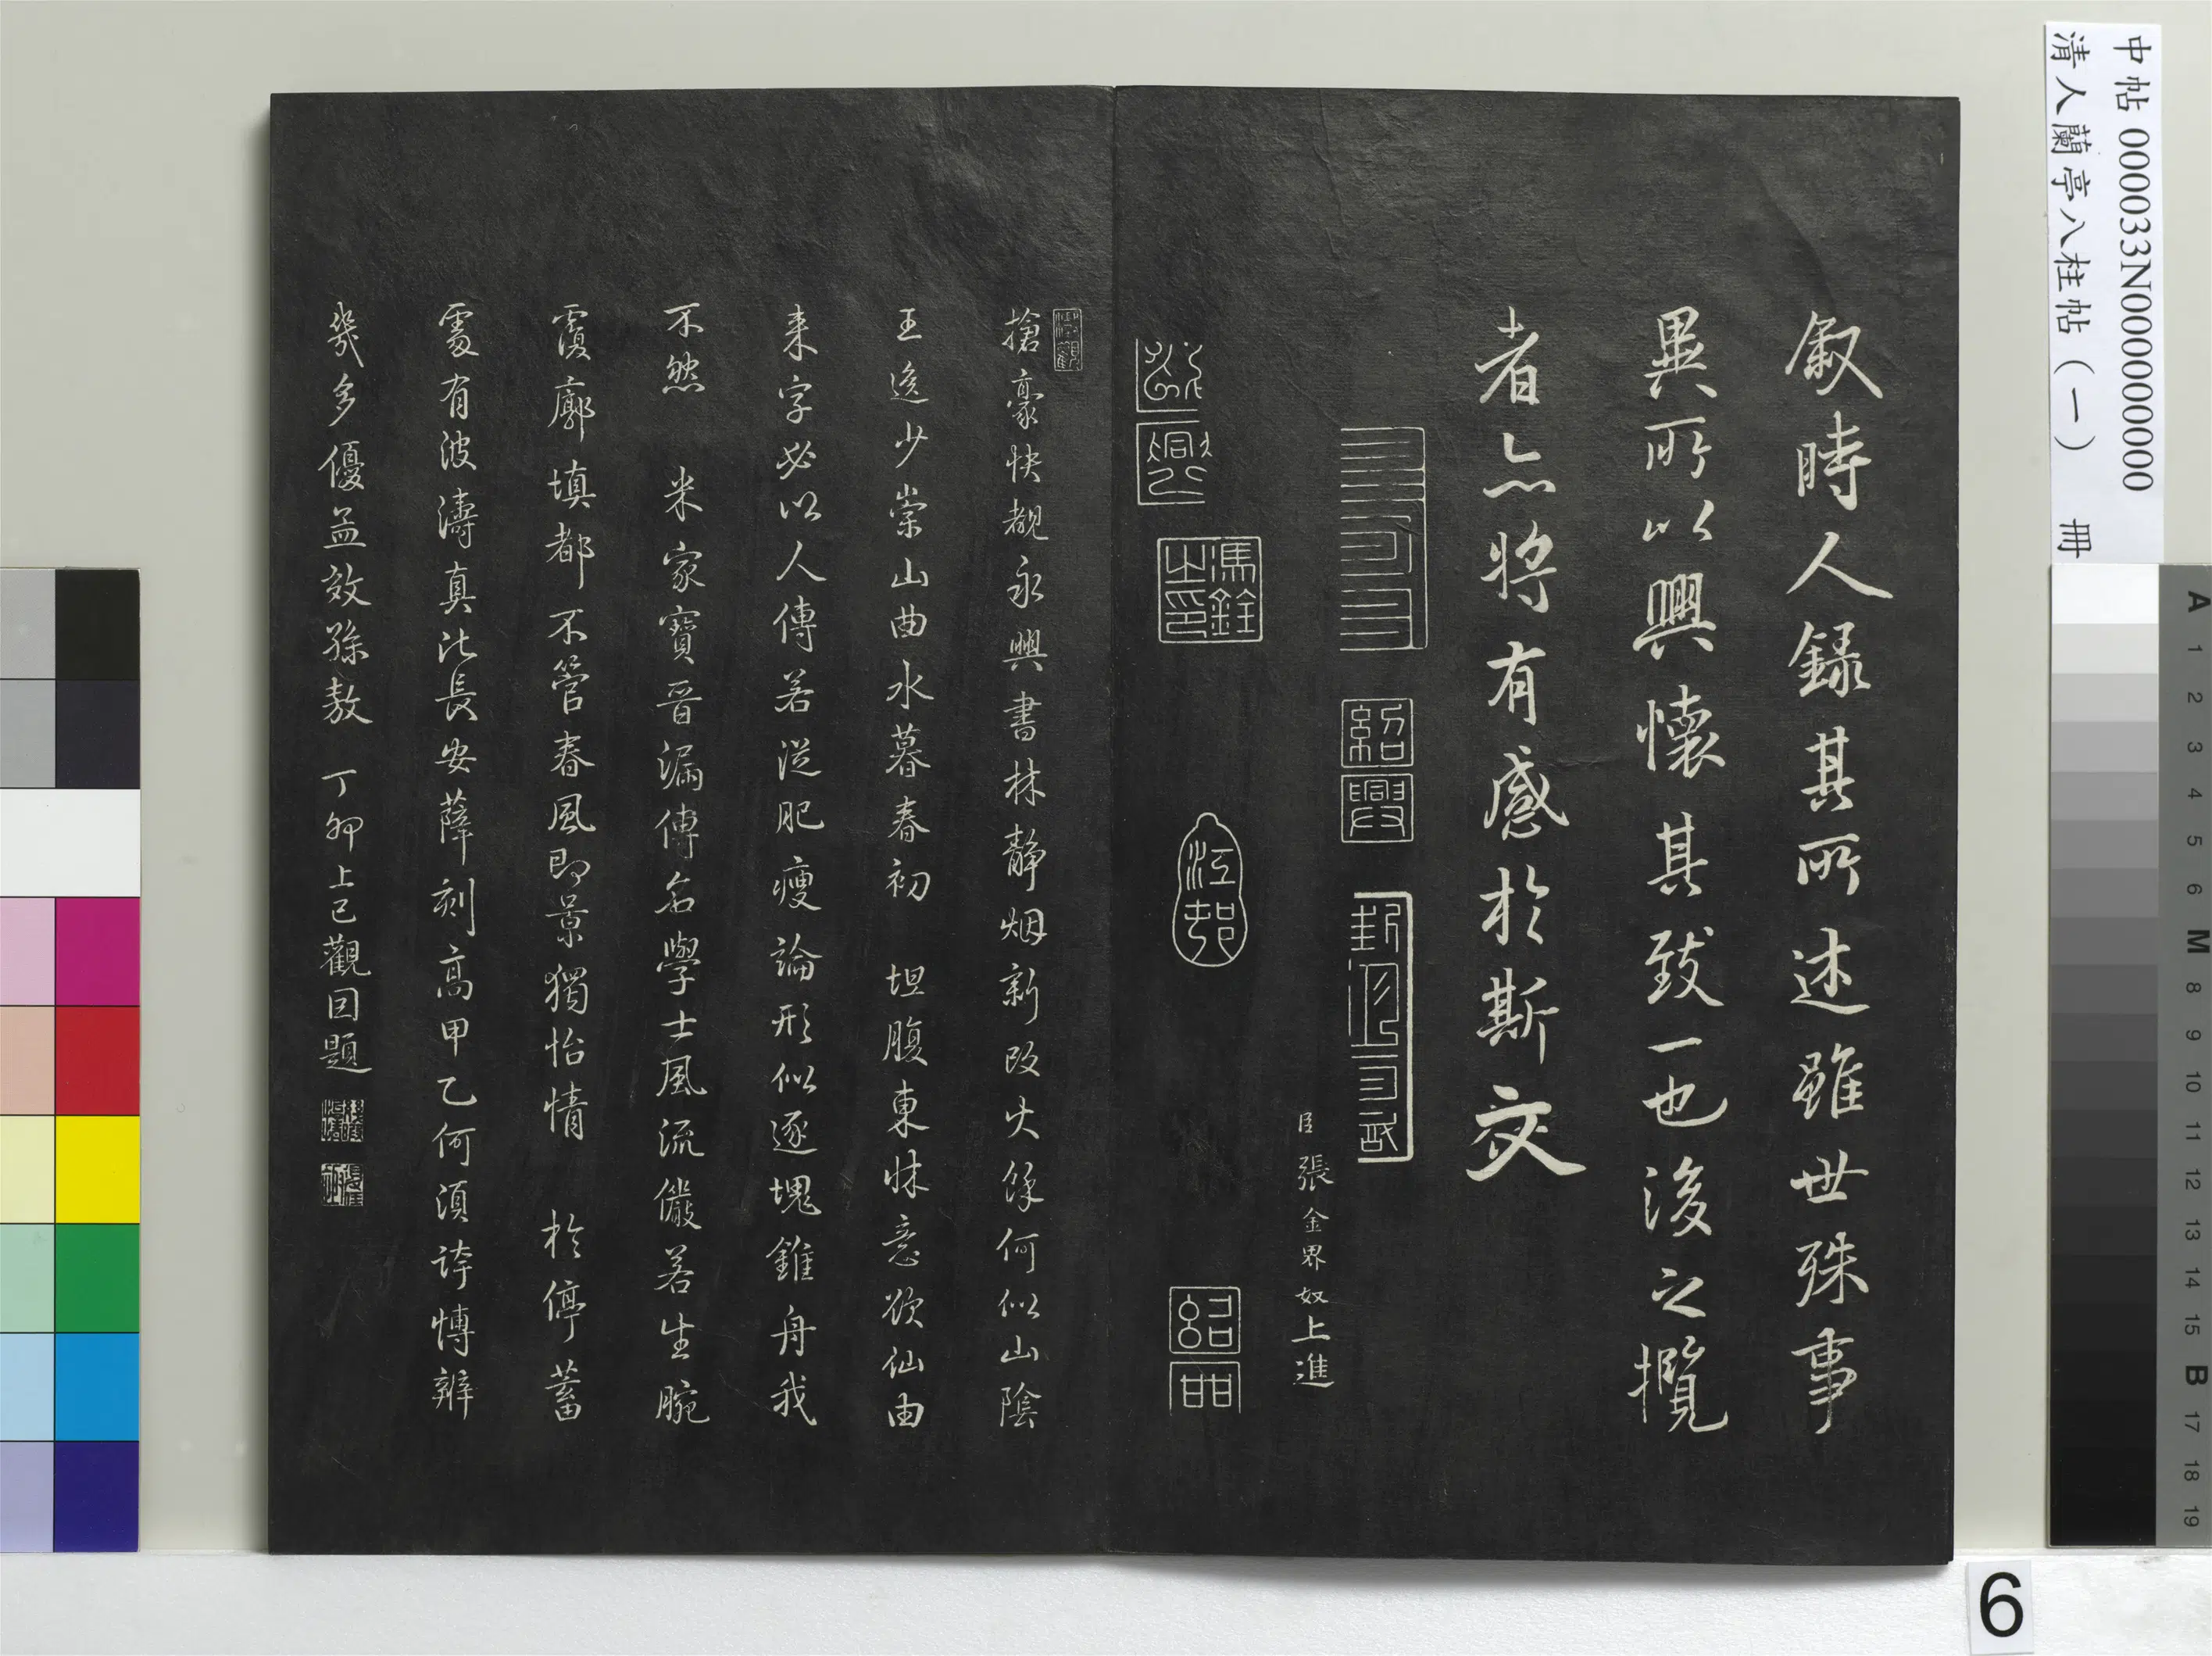 中帖 000033N000000000
清人蘭亭八柱帖（一） 冊
敘時人錄其所述雖世殊事
異所以興懷其致一也後之攬
者亦將有感於斯文
紹興
臣張金界奴上進
馮銓之印
江邨
御觀
搶豪快覩永興書林靜烟新改火餘何似山陰
王逸少崇山曲水暮春初 坦腹東牀意欲仙由
来字必以人傳若從肥瘦論形似逐塊錐舟我
不然 米家寶晋漏傳名學士風流儼若生腕
廓填都不管春風即景獨怡情 於停蓄
處有波濤真比長安薛刻高甲乙何須誇博辨
幾多優孟效孫敖 丁卯上巳觀因題
6
A 1 2 3 4 5 6 M 8 9 10 11 12 13 14 15 B 17 18 19